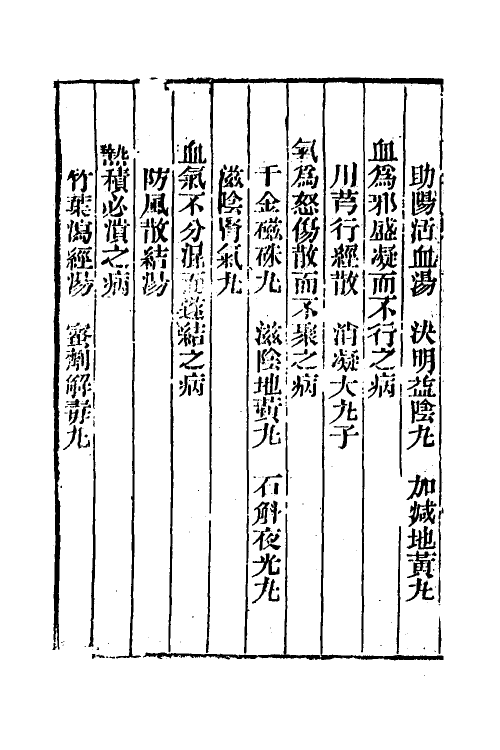 助陽活血湯　決明益陰丸　加減地黃丸
血爲邪盛凝而不行之病
川芎行經散　消凝大丸子
氣爲怒傷散而不聚之病
千金磁硃丸　滋陰地黃丸　石斛夜光丸
滋陰腎氣丸
血氣不分混而遂結之病
防風散結湯
熱積必潰之病
竹葉瀉經湯　蜜劑解毒丸